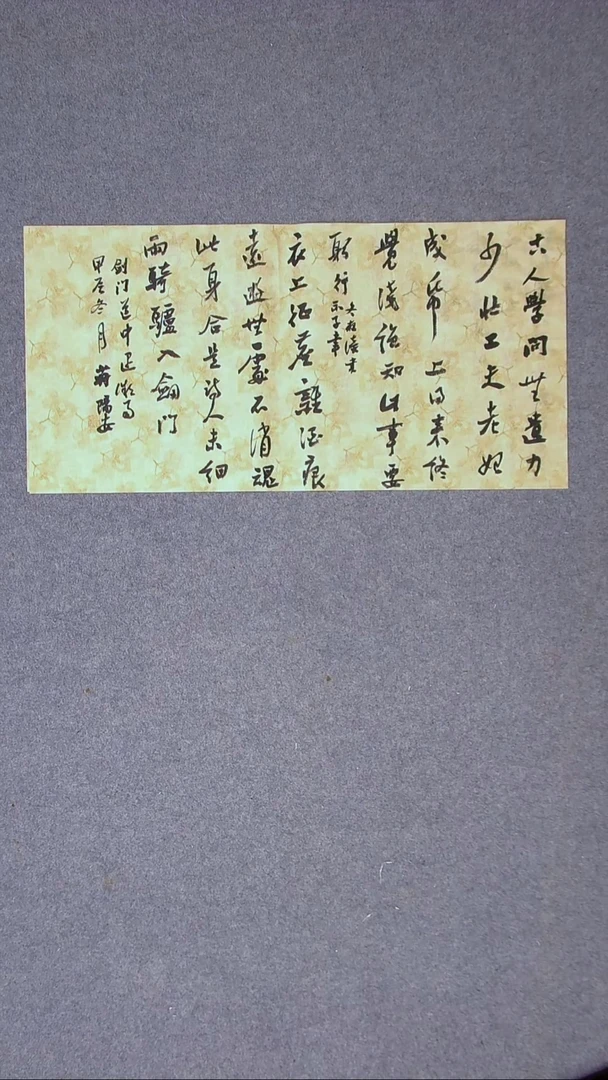 古人學問無遺力
少壯工夫老始
成紙上得来終
覺淺絶知此事要
躬行
冬夜读书
示子聿
衣上征塵雜酒痕
遠遊無處不消魂
此身合是詩人未細
雨騎驢入劍門
剑门道中遇微雨
甲辰冬月